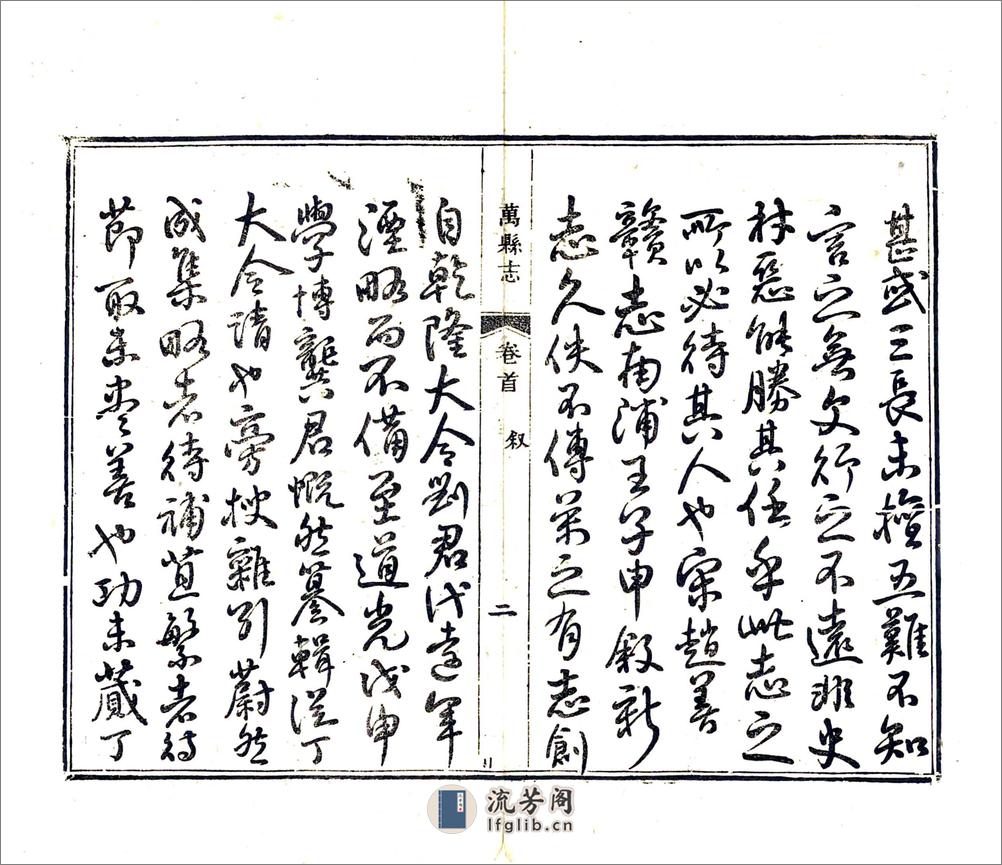 甚或三長未擅五難不知
言之無文行之不遠非史
材惡能勝其任乎此志之
所以必待其人也宋趙善
贛志南浦王子申敘新
志久佚不傳萬之有志創
萬縣志
卷首
叙
二
自乾隆大令劉君代遠年
湮略而不備至道光戊申
學博龔君慨然纂輯從丁
大令請也旁搜雜引蔚然
成集略者待補苴繁者待
節取未盡善也功未蕆丁
流芳阁
lfglib.cn